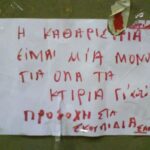 Η ΚΑΘΑΡΙΣΤΡΙΑ
ΕΙΜΑΙ ΜΙΑ ΜΟΝΟ
ΓΙΑ ΟΛΑ ΤΑ
ΚΤΙΡΙΑ ΓΙ' ΑΥΤΟ
ΠΡΟΣΟΧΗ ΣΤΑ
ΣΚΟΥΠΙΔΙΑ ΣΑΣ